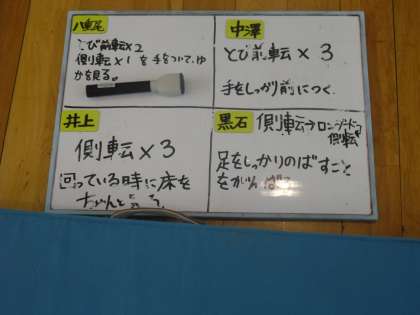 八重尾
とび前転×2
側転×1 を手をついて、ゆ
かを見る。
中澤
とび前転×3
手をしっかり前につく。
井上
側転×3
回っている時に床を
ちゃんと
黒石
側転→ロンダート
側転
足をしっかりのばすこと
をがんば